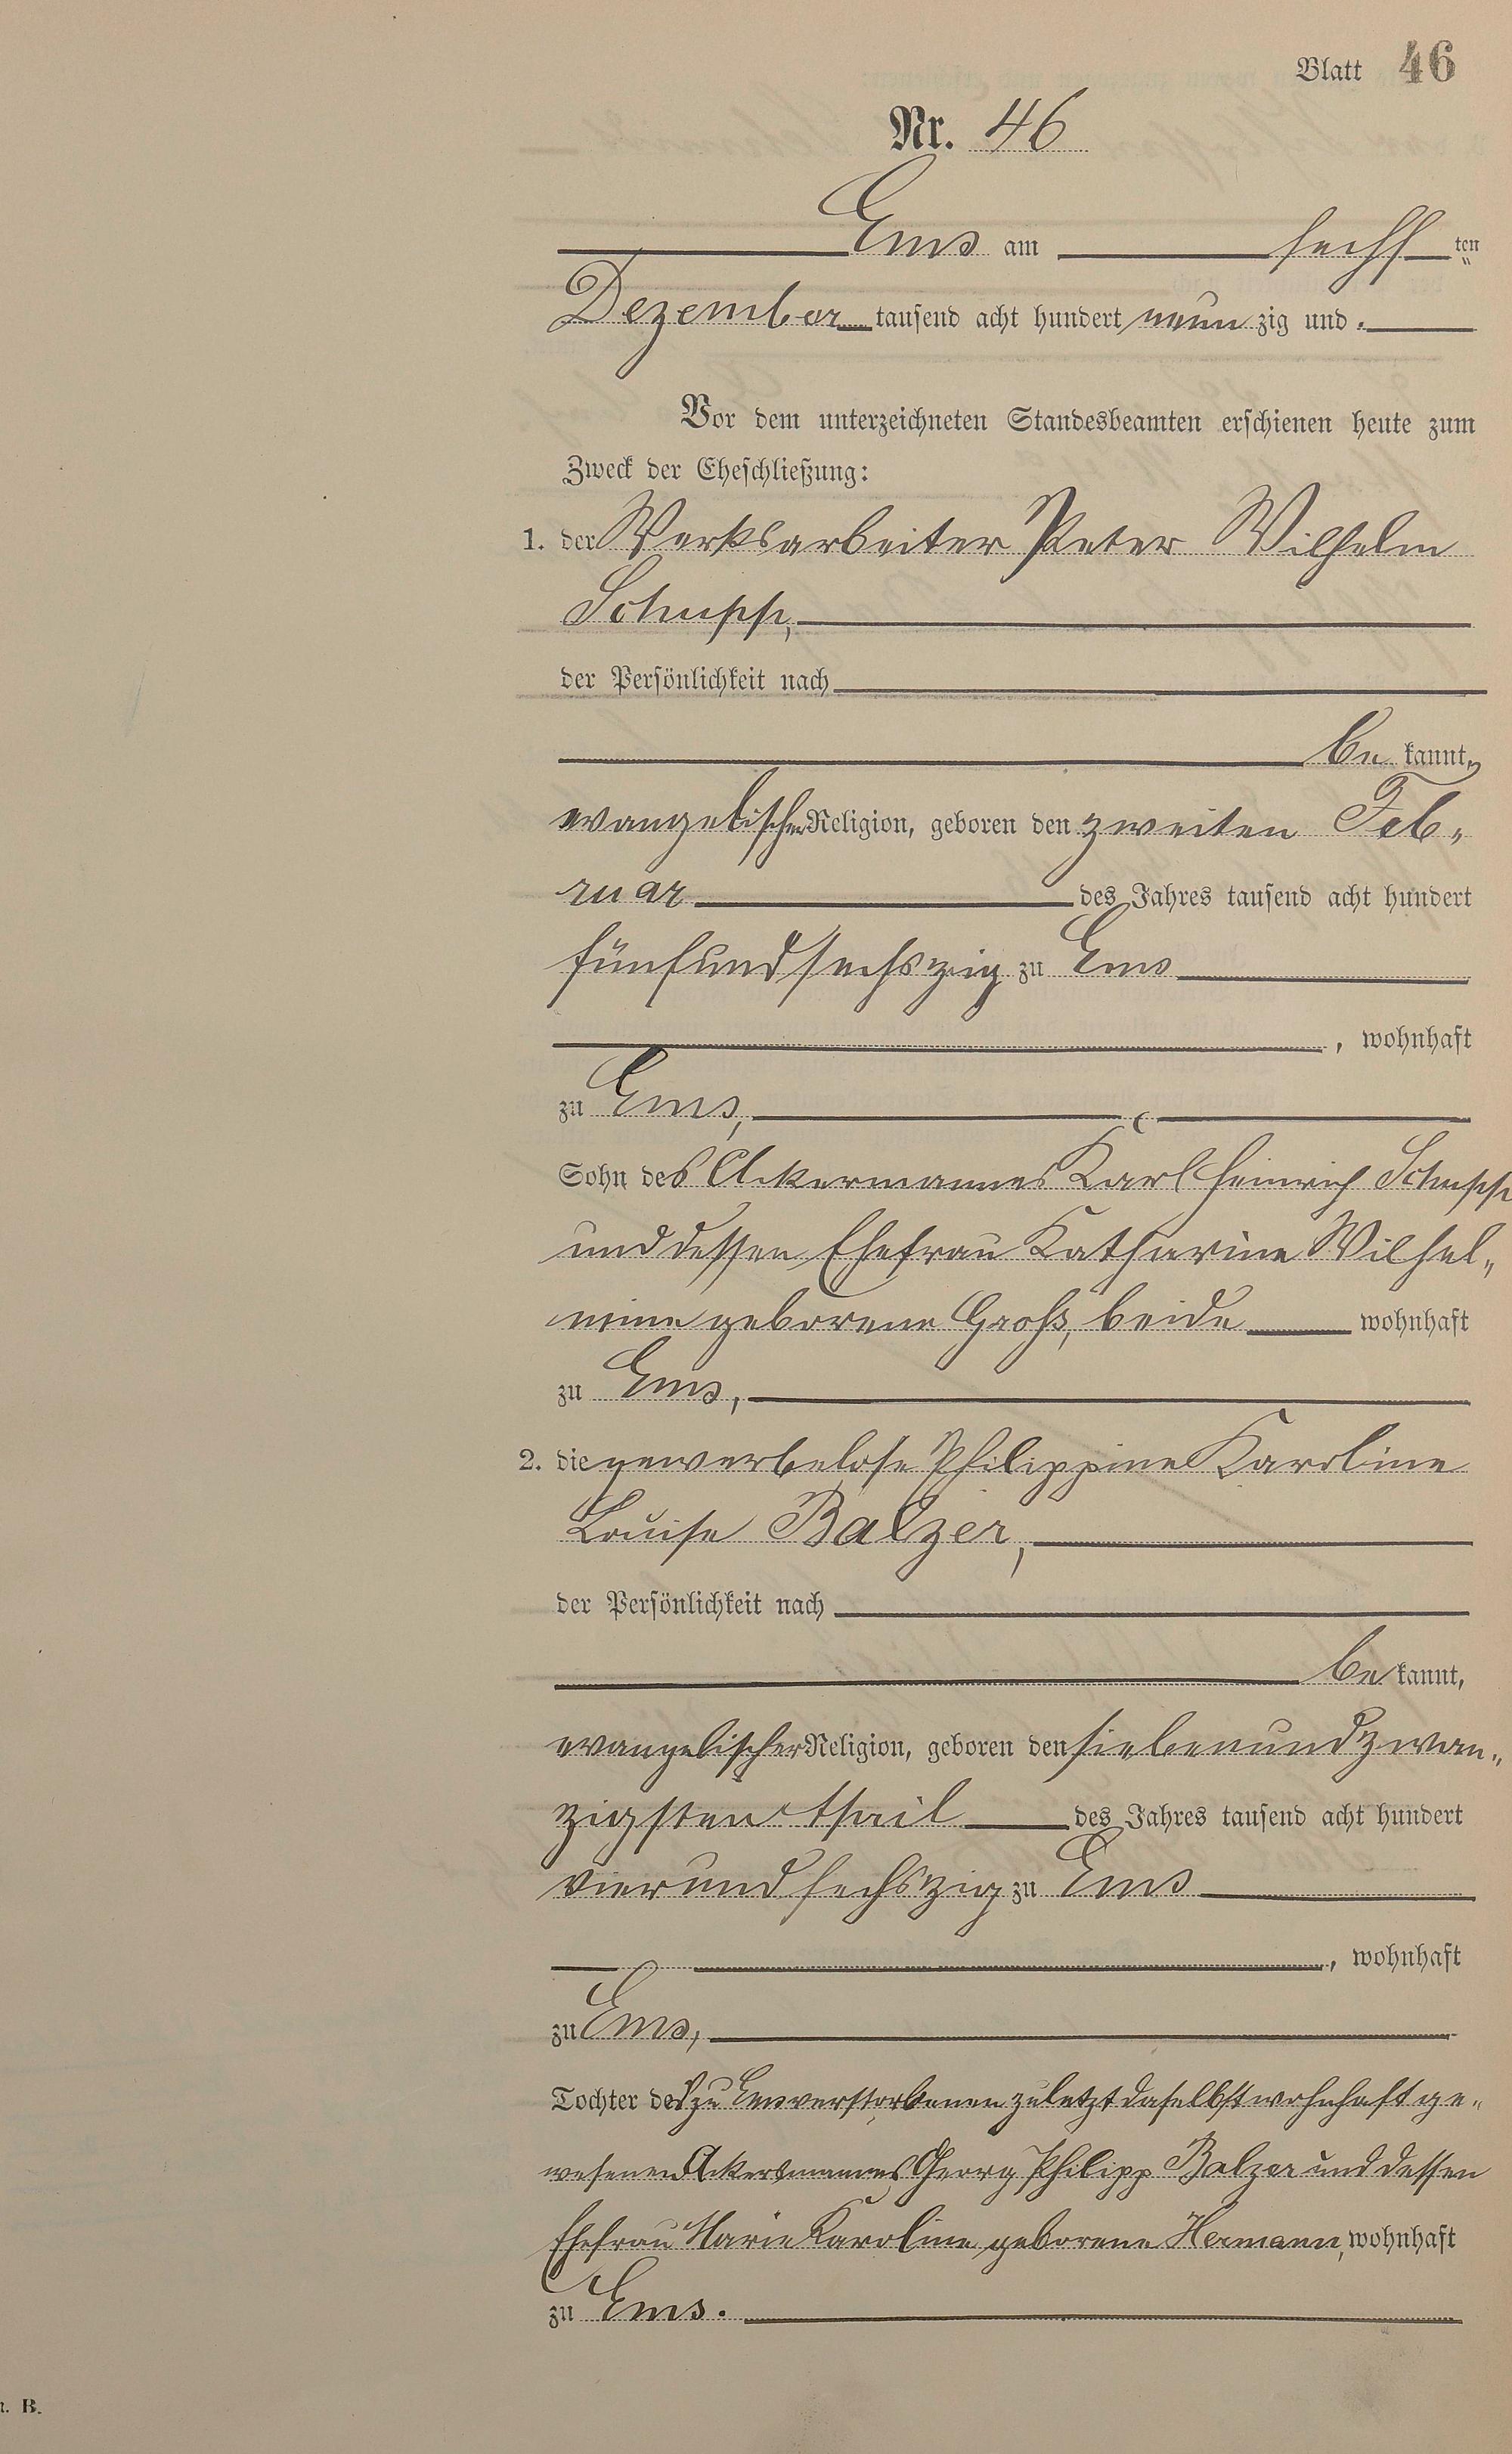 Blatt 46
Nr. 46
Ems am sechs ten
Dezember tausend acht hundert neun zig und .
Vor dem unterzeichneten Standesbeamten erschienen heute zum
Zweck der Eheschließung:
1. der Werksarbeiter Peter Wilhelm
Schupp,
der Persönlichkeit nach
be kannt,
evangelischer Religion, geboren den zweiten Feb„
ruar des Jahres tausend acht hundert
fünfundsechszig zu Ems
, wohnhaft
zu Ems,
Sohn des Ackermannes Karl Heinrich Schupp
und dessen Ehefrau Katharine Wilhel„
mine geborene Groß, beide wohnhaft
zu Ems,
2. die gewerbelose Philippine Karoline
Louise Balzer,
der Persönlichkeit nach
be kannt,
evangelischer Religion, geboren den siebenundzwan„
zigsten des Jahres tausend acht hundert
vierundsechszig zu Ems
, wohnhaft
zu Ems,
Tochter des zu Ems verstorbenen zuletzt daselbst wohnhaft ge„
wesenen Ackersmannes Georg Philipp Balzer und dessen
Ehefrau Marie Karoline geborene Hermann, wohnhaft
zu Ems.
B.